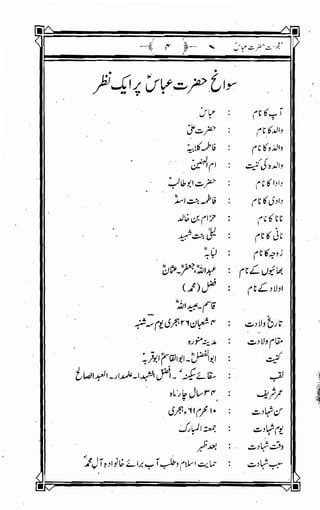 معجزات حضرت عباسؑ ۴
سوانح حضرت عباسؑ پر ایک نظر
آپ کا نام : عباسؑ
والد کا نام : حضرت علیؑ
والدہ کا نام : فاطمہ کلابیہ
والدہ کی کنیت : ام البنینؑ
دادا کا نام : حضرت ابو طالبؑ
دادی کا نام : فاطمہ بنت اسدؑ
نانا کا نام : حزام بن خالد
نانی کا نام : لیلیٰ بنت شہید
زوجہ کا نام : لبابہؑ
بھائیوں کے نام : عبداللہؑ جعفرؑ۔ عثمانؑ
اولاد کے نام : فضل (محمد)
قاسم۔ عبیداللہؑ
تاریخ ولادت : ۴ شعبان ۲۶ ہجری یوم سہ شنبہ
مقام ولادت : مدینہ منورہ
کنیت : ابوالفضلؑ۔ ابوالقاسم ابو قربہ
لقب : سقائے سکینہؑ۔ افضل الشہدا۔ علمدار۔ العبد الصالح
عمر شریف : ۳۴ سال چار ماہ
سن شہادت : ۱۰ محرم ۶۱ ہجری
یوم شہادت : جمعۃ المبارک
وقت شہادت : بعد ظہر
سبب شہادت : حمایت اسلام و طلب آب برائے خانوادہ آل محمدؐ